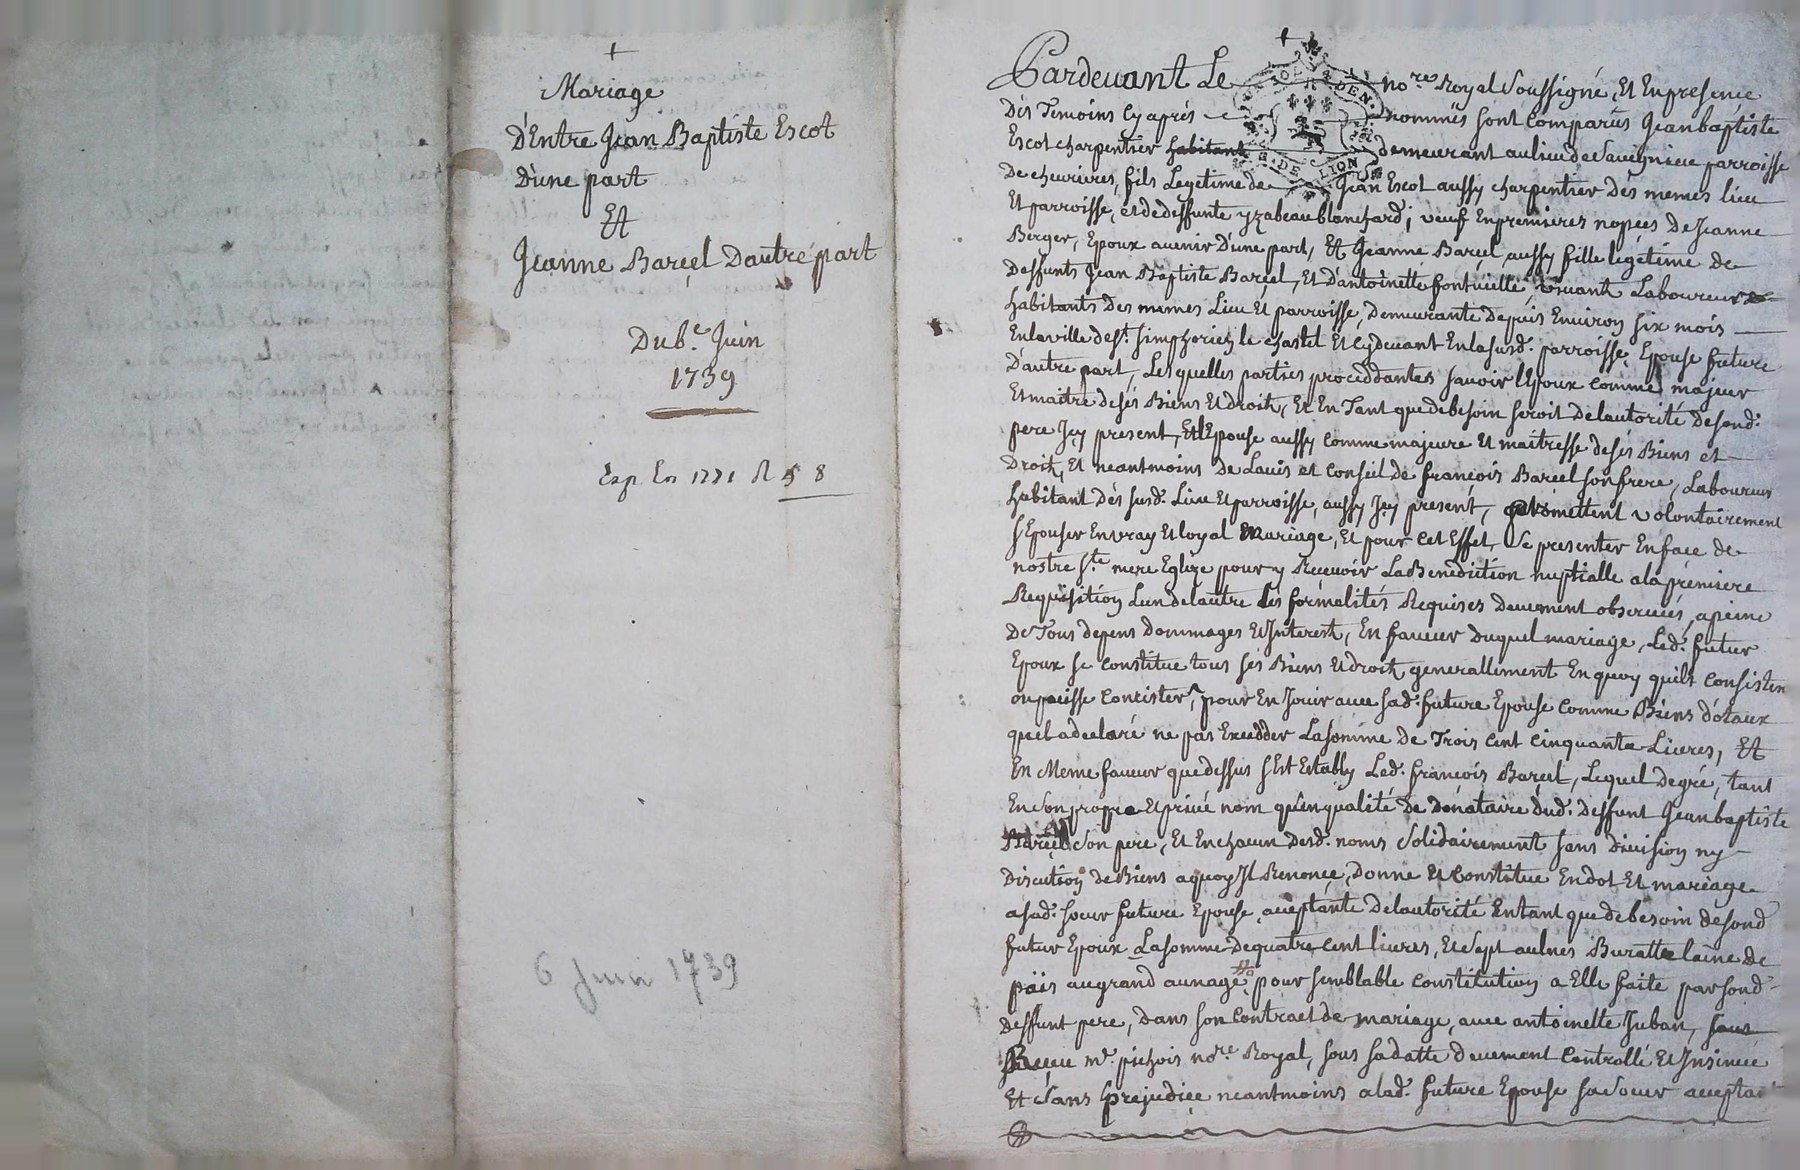 Mariage
D'Entre Jean Baptiste Escot
D'une part
Et
Jeanne Barçel D'autre part
Du 6.e Juin
1739
Exp. En 1771 R 5 8
6 Juin 1739
Pardevant Le no.re Royal Soussigné, Et En presence
Dès Temoins Cy après nommés sont Comparus Jean baptiste
Escot charpentier habitant demeurant au lieu de Savignieu parroisse
De chevrieres, fils Legetime de Jean Escot aussy charpentier des memes lieu
Et parroisse, et de deffunte yzabeau blanchard, veuf En premieres nopçes De Jeanne
Berger, Epoux avenir D'une part, Et Jeanne Barcel aussy fille legetime de
Deffunts Jean Baptiste Barcel, Et D'antoinette fontvieille, vivants Laboureurs
habitants Des memes Lieu Et parroisse, Demeurante depuis Environ six mois
En la ville de s.t simphorien le chastel Et Cydevant En la susd. parroisse, Epouse future
D'autre part, Les quelles parties proceddantes savoir l'Epoux Comme majeur
Et maitre de sés Biens Et Droits, Et En Tant que de besoin seroit De lautorité de sond.
pere Jçy present, Et l'Epouse aussy comme majeure Et maitresse de sés Biens et
Droits, Et neantmoins De Lavis et Conseil de françois Barcel son frere, Laboureur
habitant Dès susd. Lieu Et parroisse, aussy Jçy present, promettent volontairement
s'Epouser En vray Et loyal Mariage, Et pour Cet Effet, Se presenter En face de
nostre S.te mere Eglize pour y Recevoir La Benediction nuptialle a la premiere
Requisition Lun de lautre les formalités Requises deuement observées, a peine
De Tous depens dommages Et Interest, En faveur duquel mariage, Led. futur
Epoux se Constitue tous ses Biens Et droits generallement En quoy quils Consistent
ou puisse Concister, pour En Jouir avec sad. future Epouse Comme Biens dotaux
quil a declaré ne pas Excedder La somme de Trois Cent Cinquante Livres, Et
En Meme faveur que dessus s'Est Estably Led. françois Barcel, Lequel De gré, tant
En son propre Et privé nom qu'En qualité de donataire dud. deffunt Jean baptiste
Barcel son pere, Et En chacun Desd. noms Solidairement sans division ny
Discution de Biens a quoy Il Renonçe, Donne Et Constitue En dot Et mariage
a sad. soeur future Epouse, aceptante De lautorité En tant que de besoin de sond
futur Epoux La somme de quatre cent livres, Et Sept aulnes Buratte laine de
païs au grand aunage, pour semblable Constitution a Elle faite par sond.
deffunt pere, Dans son Contract de mariage, avec antoinette Juban,
Reçeu m.e pichois no.re Royal, sous sa datte deuement Controllé Et Insinué
Et Sans prejudiçe neantmoins a lad. future Epouse sa Soeur